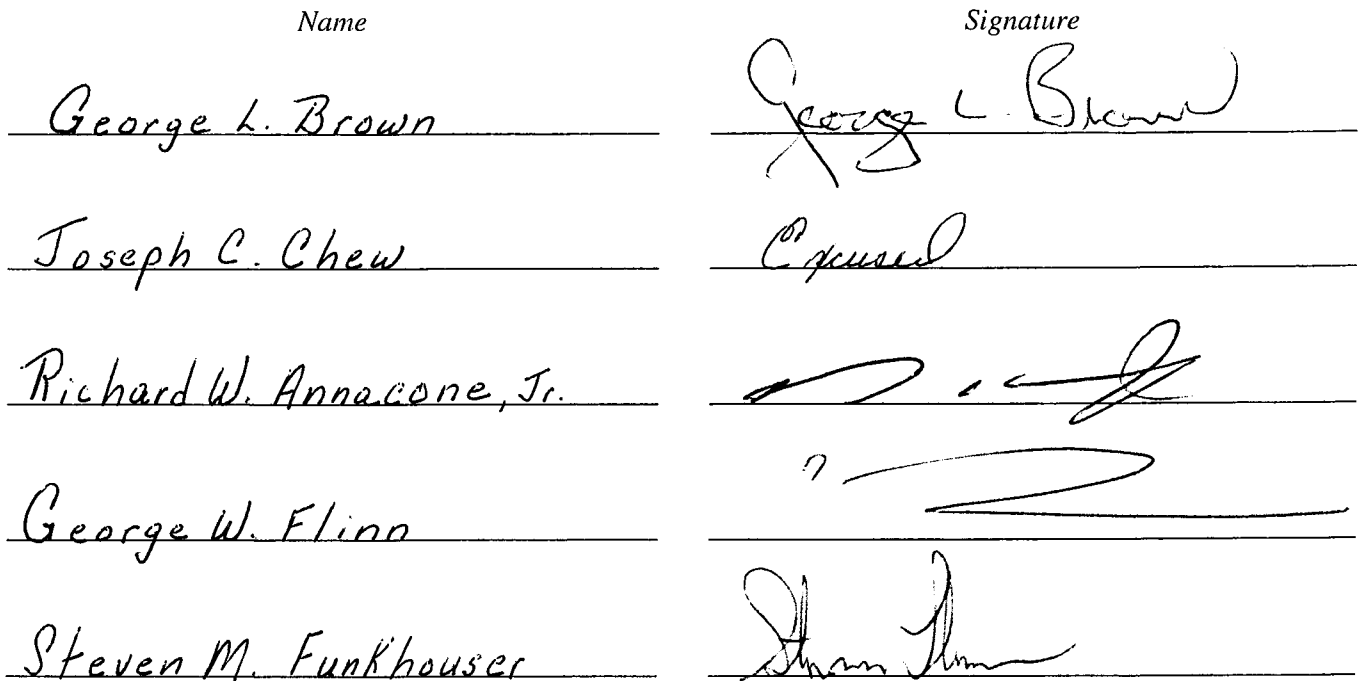 Name Signature
George L. Brown George L. Brown
Joseph C. Chew Excused
Richard W. Annacone, Jr.
George W. Flinn
Steven M. Funkhouser